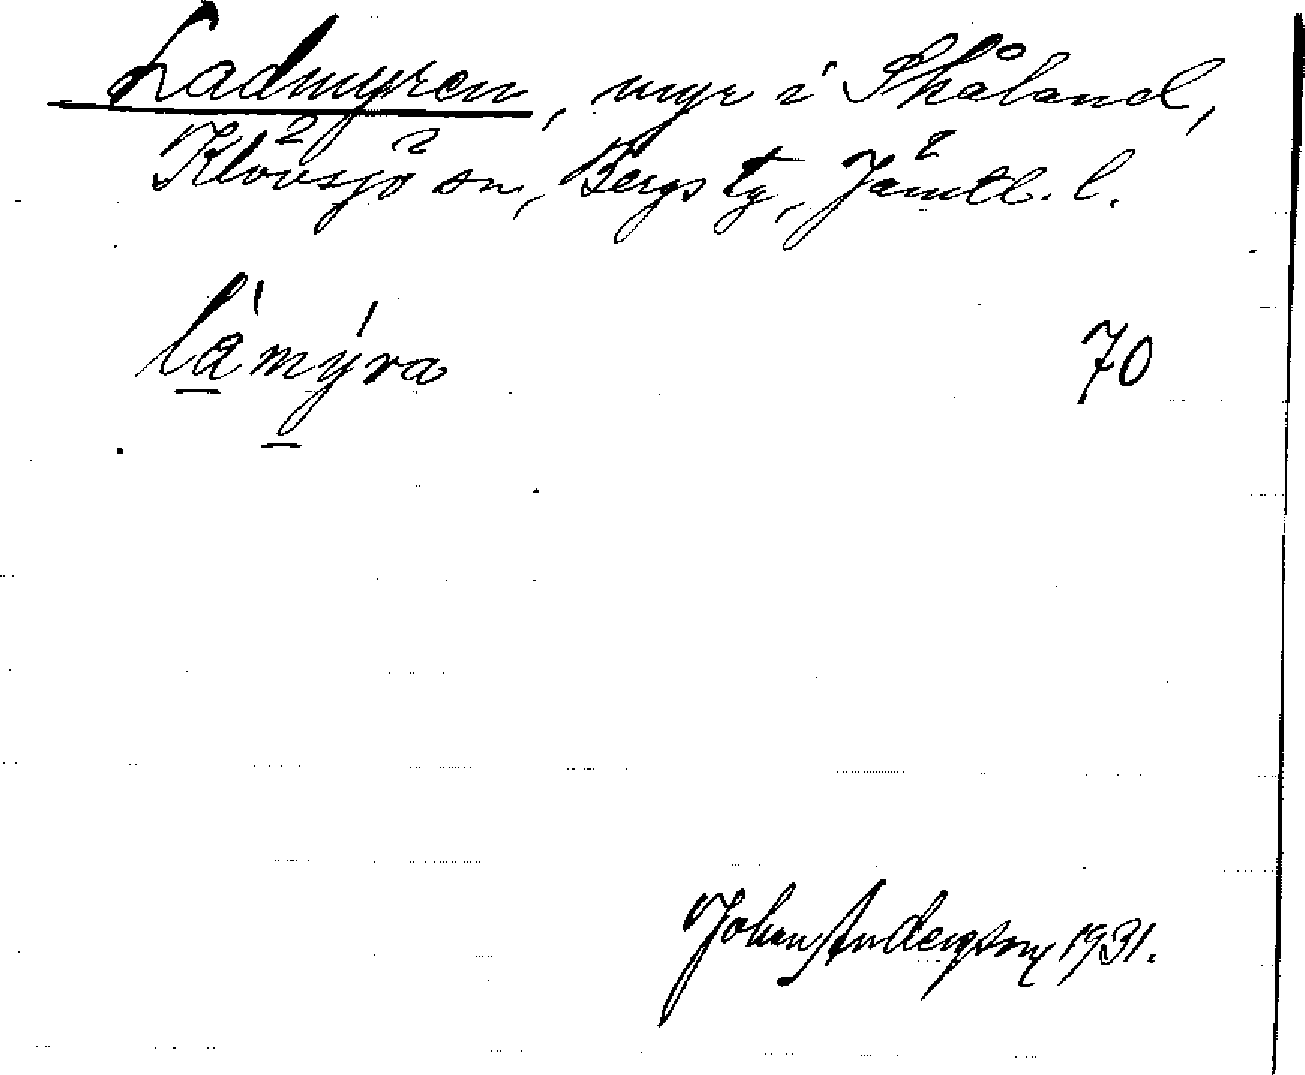 Ladmyren, myr i Skåland,
Klövsjö sn, Bergs tg, Jämtl. l.
lámýra 70
Johan Andersson 1931.